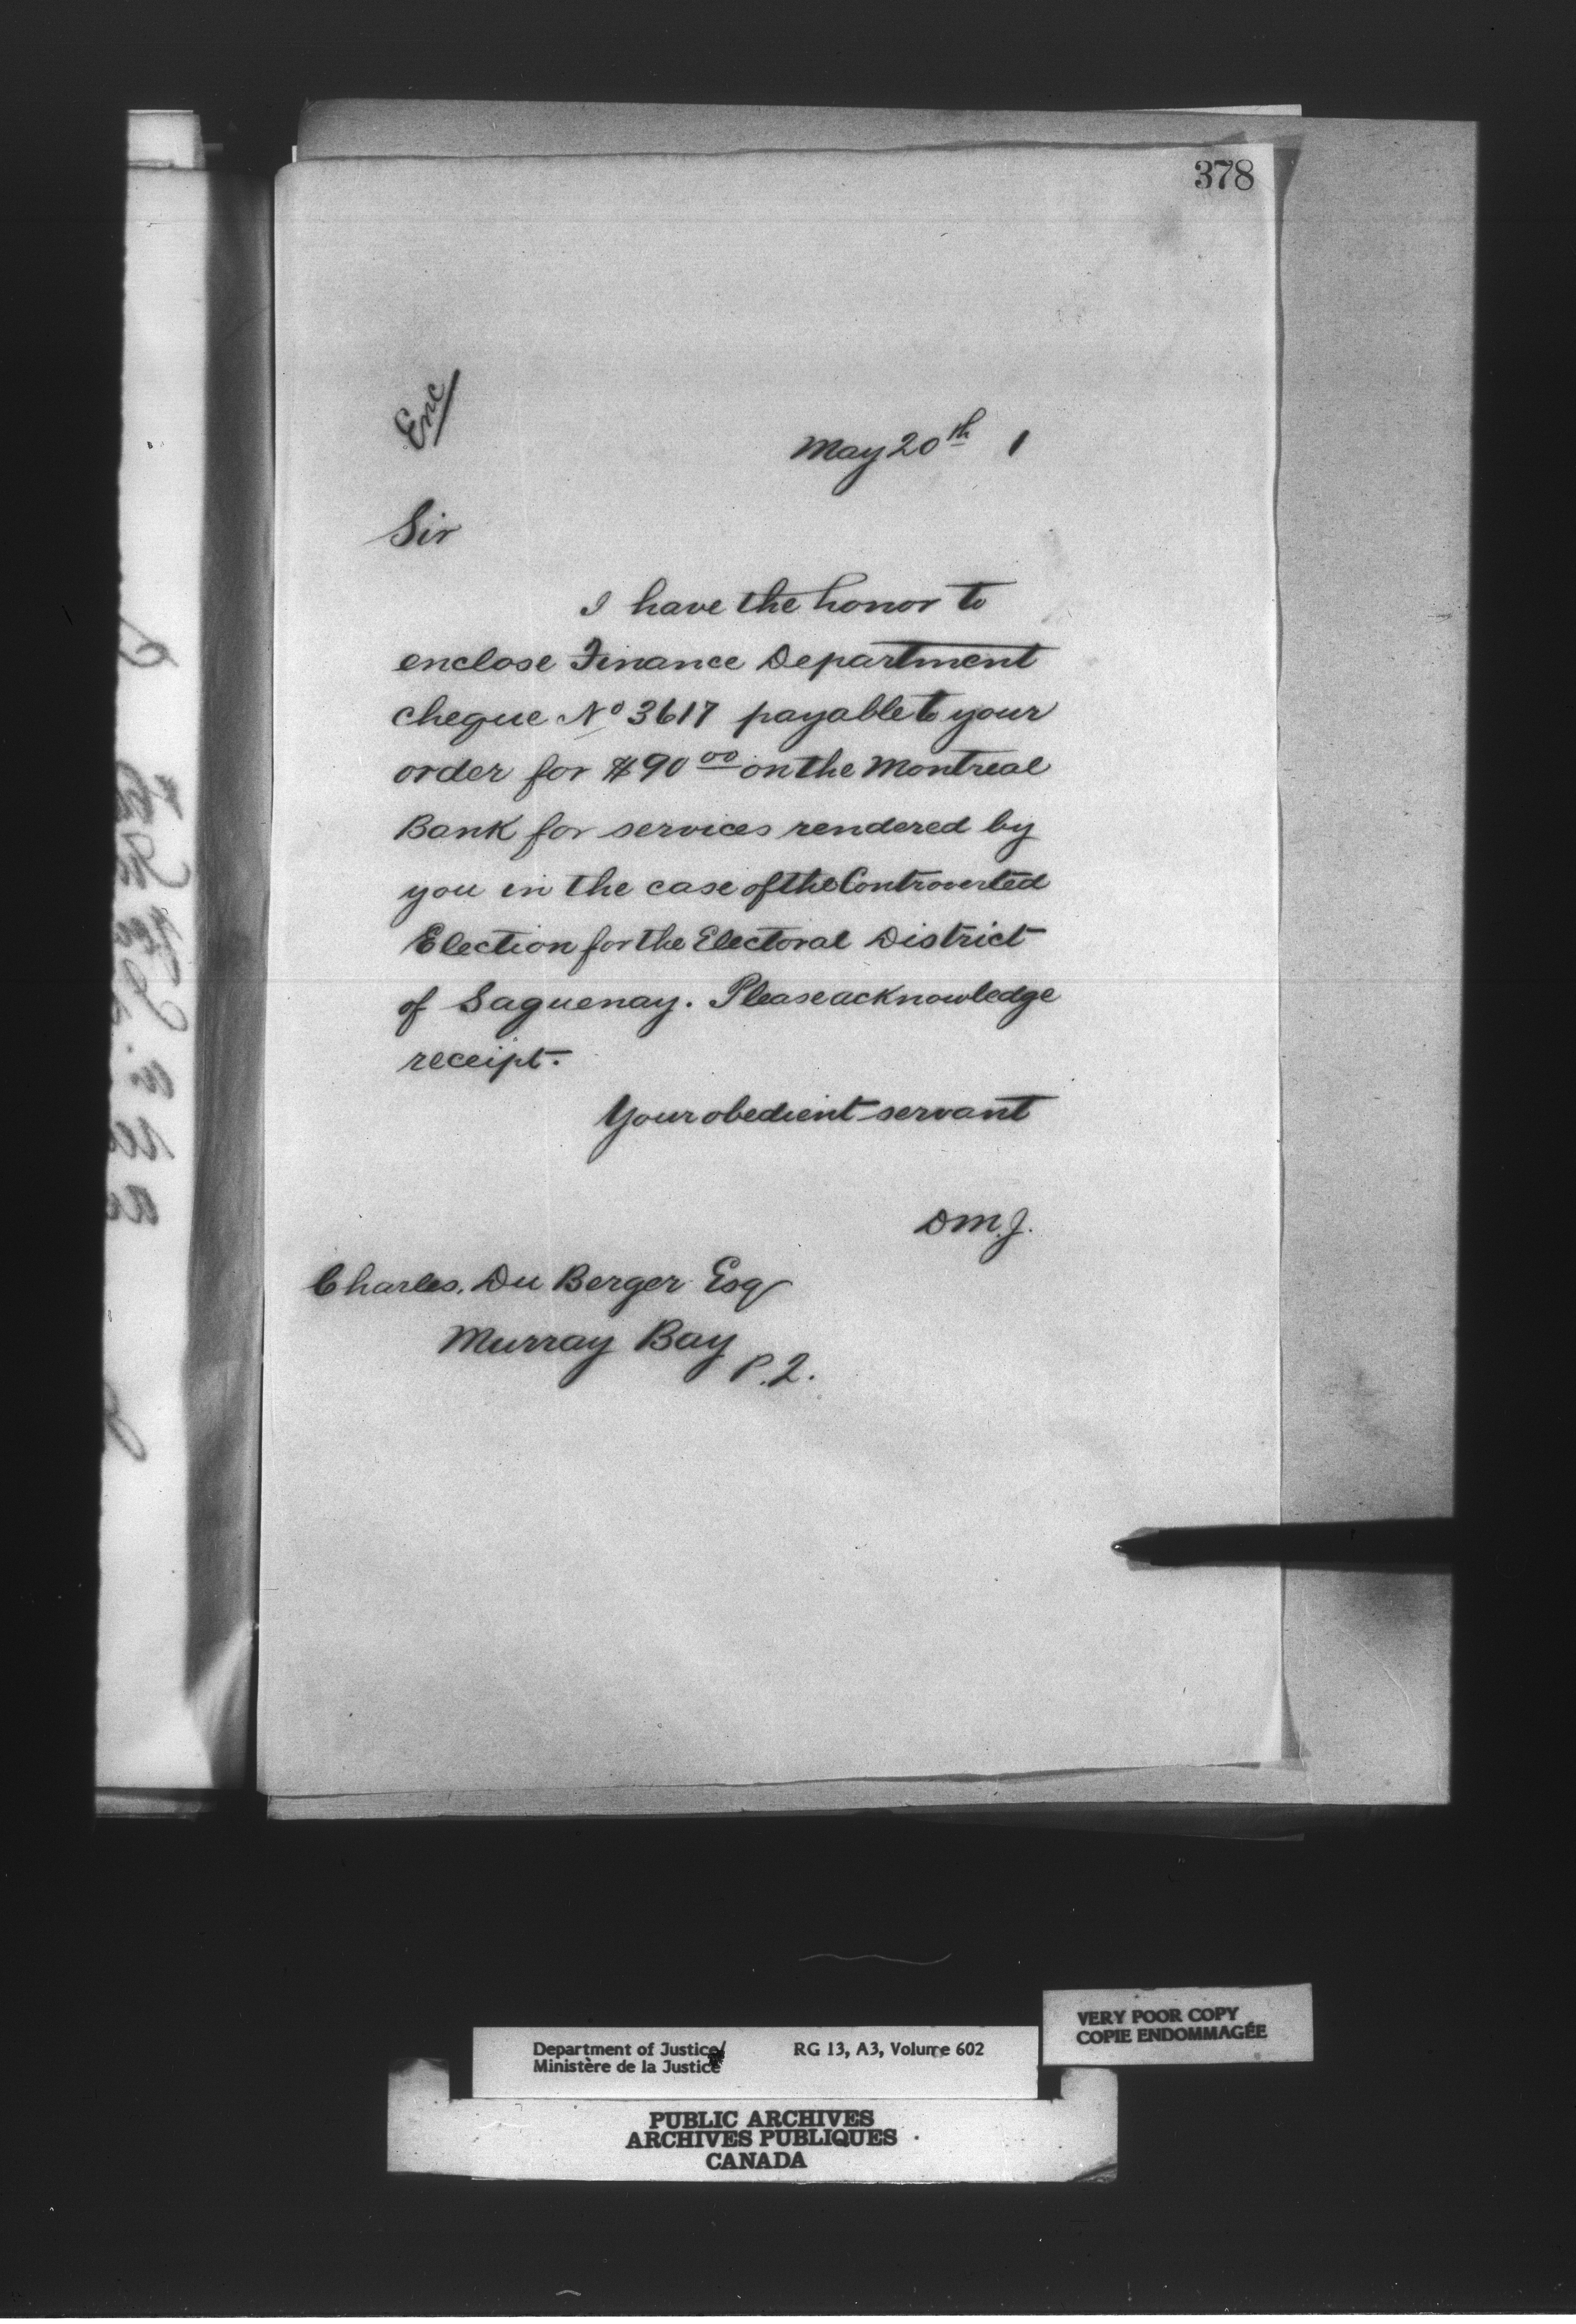 378
Enc
May 20th 1
Sir
I have the honor to
enclose Finance Department
cheque No 3617 payable to your
order for $90 00 on the Montreal
Bank for services rendered by
you in the case of the Controverted
Election for the Electoral District
of Saguenay. Please acknowledge
receipt.
Your obedient servant
D.M.J.
Charles. Du Berger Esq
Murray Bay
P.Q.
VERY POOR COPY
COPIE ENDOMMAGÉE
Department of Justice/ RG 13, A3, Volume 602
Ministère de la Justice
PUBLIC ARCHIVES
ARCHIVES PUBLIQUES
CANADA